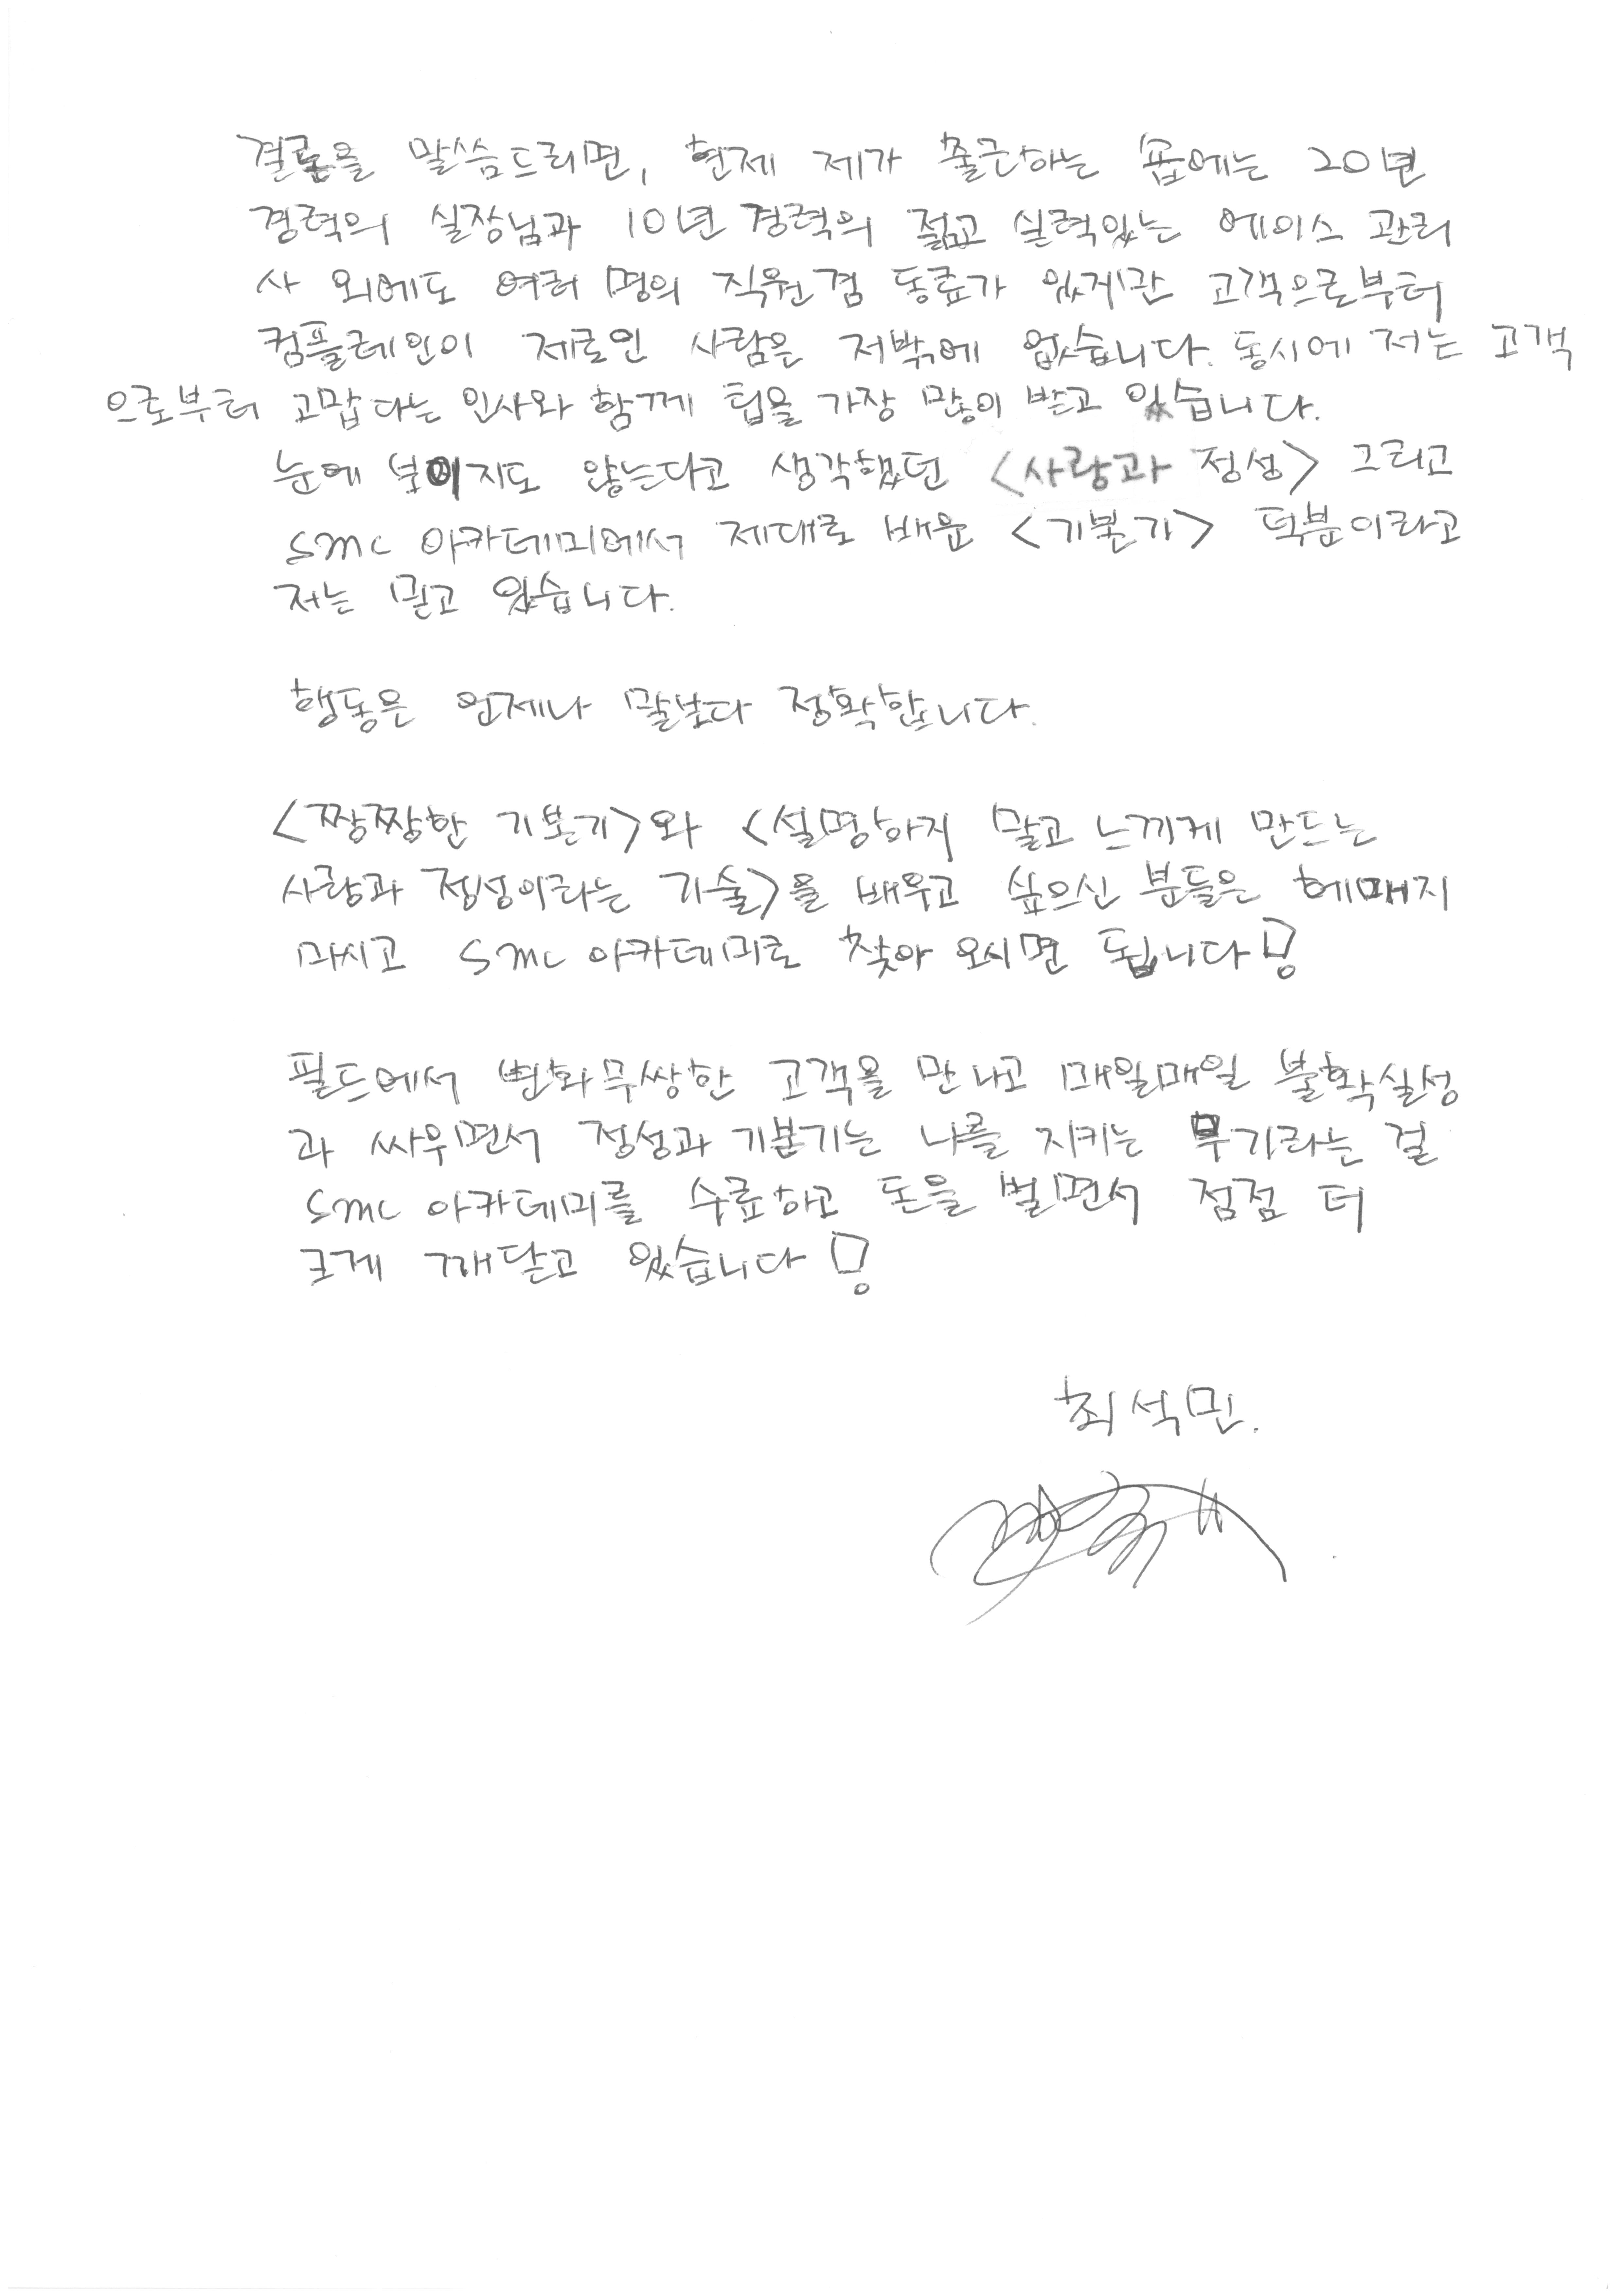 결론을 말씀드리면, 현재 제가 출근하는 숍에는 20년
경력의 실장님과 10년 경력의 젊고 실력있는 에이스 관리
사 외에도 여러 명의 직원겸 동료가 있지만 고객으로부터
컴플레인이 제로인 사람은 저밖에 없습니다. 동시에 저는 고객
으로부터 고맙다는 인사와 함께 팁을 가장 많이 받고 있습니다.
눈에 보이지도 않는다고 생각했던 <사랑과 정성> 그리고
SMC 아카데미에서 제대로 배운 <기본기> 덕분이라고
저는 믿고 있습니다.
행동은 언제나 말보다 정확합니다.
<짱짱한 기본기>와 <설명하지 말고 느끼게 만드는
사랑과 정성이라는 기술>을 배우고 싶으신 분들은 헤매지
마시고 SMC 아카데미로 찾아 오시면 됩니다!
필드에서 변화무쌍한 고객을 만나고 매일매일 불확실성
과 싸우면서 정성과 기본기는 나를 지키는 무기라는 걸
SMC 아카데미를 수료하고 돈을 벌면서 점점 더
크게 깨닫고 있습니다!
최석민.